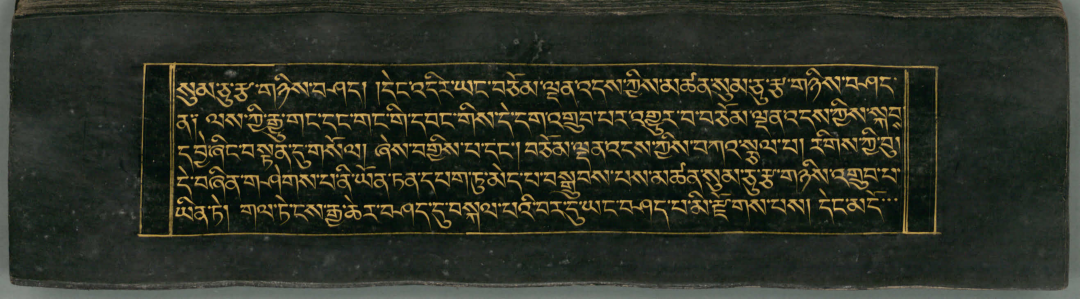 སུམ་ཅུ་རྩ་གཉིས་བཤད། །དེང་འདིར་ཡང་བཅོམ་ལྡན་འདས་ཀྱིས་མཚན་སུམ་ཅུ་རྩ་གཉིས་བཤད་
ན༑ ལས་ཀྱི་རྒྱུ་གང་དང་གང་གི་དབང་གིས་དེ་དག་འགྲུབ་པར་འགྱུར་བ་བཅོམ་ལྡན་འདས་ཀྱིས་སྐབ
ད་བྱེ་ཞིང་བསྟན་དུ་གསོལ། ཞེས་བགྱིས་པ་དང་། བཅོམ་ལྡན་འདས་ཀྱིས་བཀའ་སྩལ་པ། རིགས་ཀྱི་བུ།
དེ་བཞིན་གཤེགས་པ་ནི་ཡོན་ཏན་དཔག་ཏུ་མེད་པ་བསྒྲུབས་པས་མཚན་སུམ་ཅུ་རྩ་གཉིས་འགྲུབ་པ་
ཡིན་ཏེ། གལ་ཏེ་ངས་རྒྱ་ཆེར་བཤད་དུ་བསྐལ་པའི་བར་དུ་ཡང་བཤད་པ་མི་རྫོགས་པས། དེང་མདོ་…